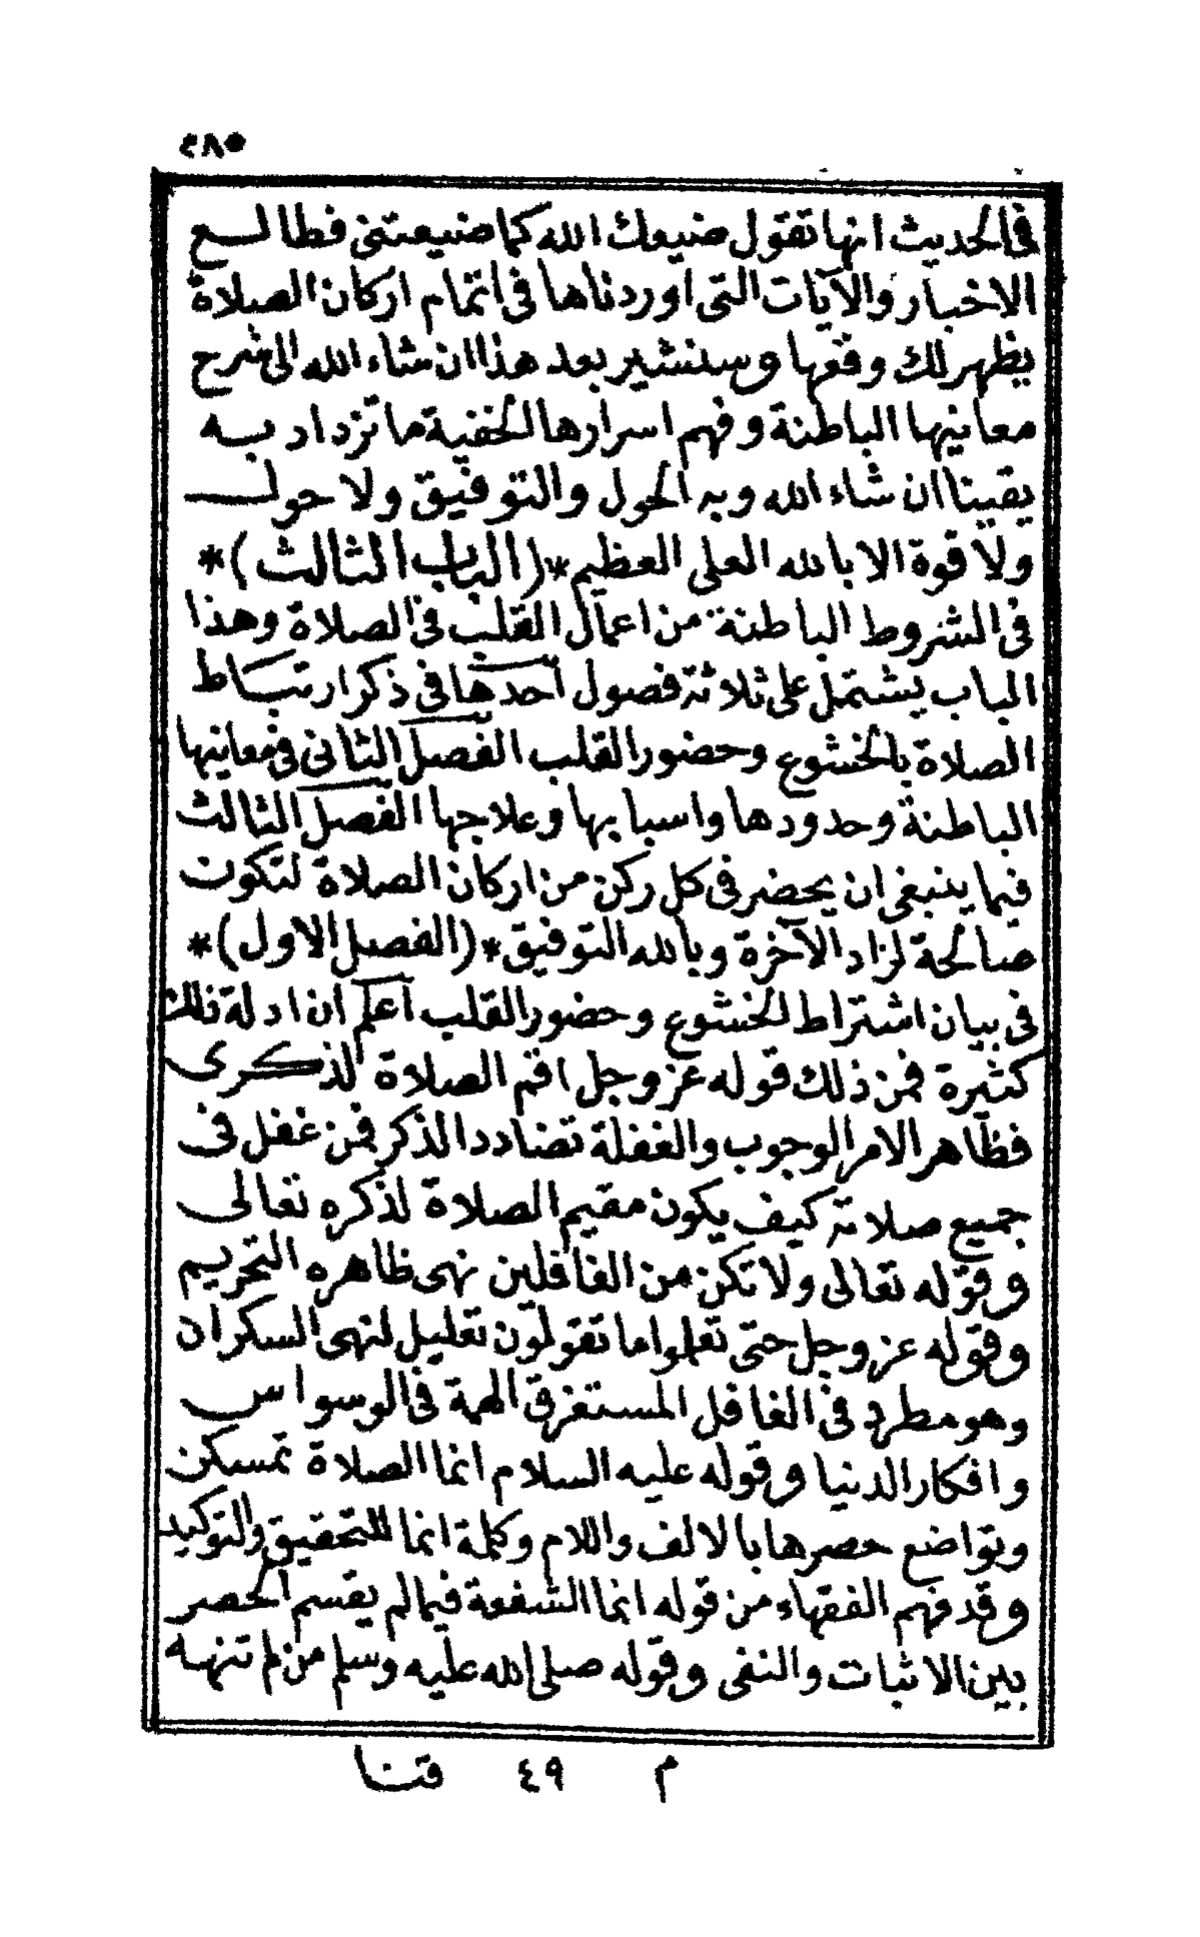 ٣٨٥
فى الحديث انها تقول ضيعك الله كما ضيعتنى فطالـــع
الاخبار والآيات التى اوردناها فى اتمام اركان الصلاة
يظهر لك وقعها وسنشير بعد هذا ان شاء الله الى شرح
معانيها الباطنة وفهم اسرارها الخفية ما تزداد بـه
يقينا ان شاء الله وبه الحول والتوفيق ولا حولـــ
ولا قوة الا بالله العلى العظيم *(الباب الثالث)*
فى الشروط الباطنة من اعمال القلب فى الصلاة وهذا
الباب يشتمل على ثلاثة فصول احدها فى ذكر ارتبـاط
الصلاة بالخشوع وحضور القلب الفصل الثانى فى معانيها
الباطنة وحدودها واسبابها وعلاجها الفصل الثالث
فيما ينبغى ان يحضر فى كل ركن من اركان الصلاة لتكون
صالحة لزاد الآخرة وبالله التوفيق *(الفصل الاول)*
فى بيان اشتراط الخشوع وحضور القلب اعلم ان ادلة ذلك
كثيرة فمن ذلك قوله عز وجل اقم الصلاة لذكـرى
فظاهر الامر الوجوب والغفلة تضادد الذكر فمن غفل فى
جميع صلاته كيف يكون مقيم الصلاة لذكره تعالى
وقوله تعالى ولا تكن من الغافلين نهى ظاهره التحريم
وقوله عز وجل حتى تعلموا ما تقولون تعليل لنهى السكران
وهو مطرد فى الغافل المستغرق الهمة فى الوسواس
وافكار الدنيا وقوله عليه السلام انما الصلاة تمسكن
وتواضع حصرها بالالف واللام وكلمة انما للتحقيق والتوكيد
وقد فهم الفقهاء من قوله انما الشفعة فيما لم يقسم الحصر
بين الاثبات والنفى وقوله صلى الله عليه وسلم من لم تنهـه
م ٤٩ قتنا